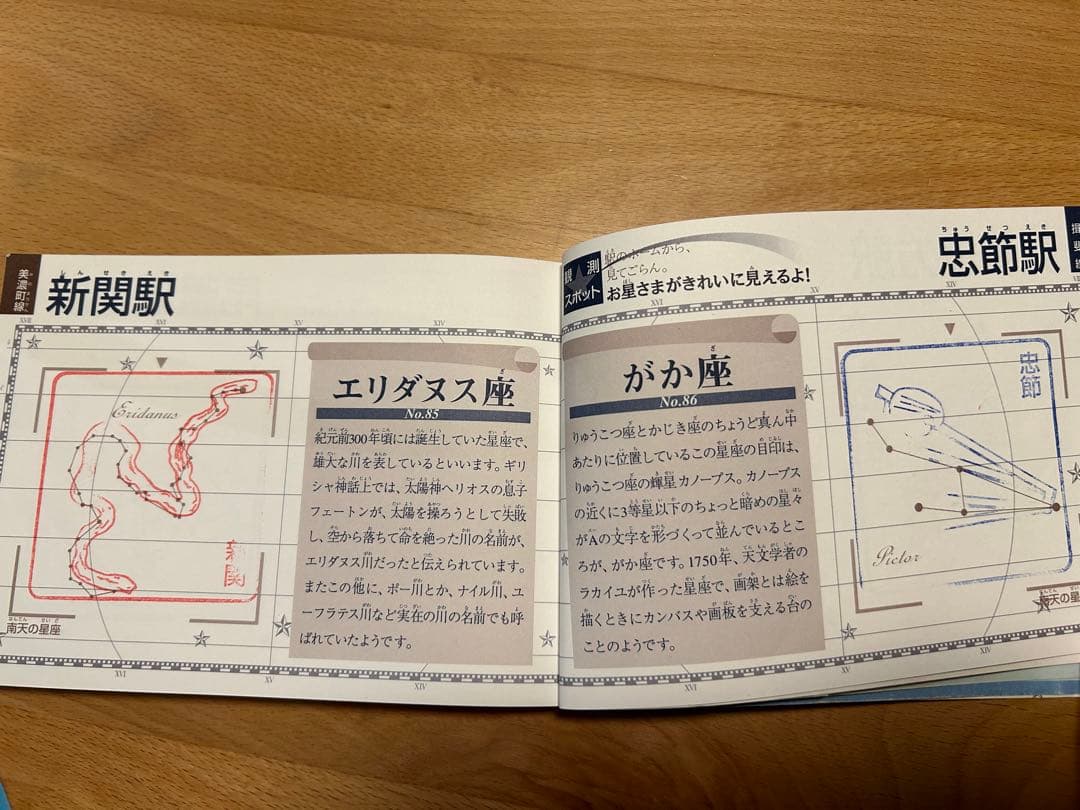 美濃町線
新関駅
しんせきえき
エリダヌス座
No.85
紀元前300年頃には誕生していた星座で、
雄大な川を表しているといいます。ギリ
シャ神話上では、太陽神ヘリオスの息子
フェートンが、太陽を操ろうとして失敗
し、空から落ちて命を絶った川の名前が、
エリダヌス川だったと伝えられています。
またこの他に、ポー川とか、ナイル川、ユ
ーフラテス川など実在の川の名前でも呼
ばれていたようです。
Eridanus
新関
南天の星座
XVI
XV
XIV
XVI
XV
XIV
観測
スポット
のホームから、
見てごらん。
お星さまがきれいに見えるよ!
ちゅうせつえき
忠節駅
揖斐線
がか座
No.86
りゅうこつ座とかじき座のちょうど真ん中
あたりに位置しているこの星座の目印は、
りゅうこつ座の輝星カノープス。カノープス
の近くに3等星以下のちょっと暗めの星々
がAの文字を形づくって並んでいるとこ
ろが、がか座です。1750年、天文学者の
ラカイユが作った星座で、画架とは絵を
描くときにカンバスや画板を支える台の
ことのようです。
忠節
Pictor
南天の星
XVI
XV
XIV
XVI
XV
XIV